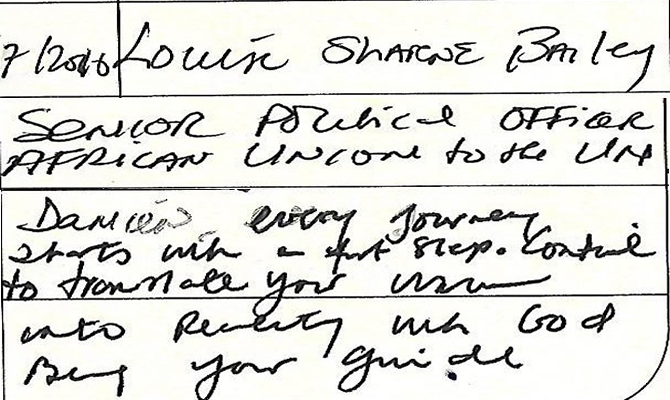 7/2016 Louise Sharne Bailey
Senior Political Officer
African Union to the UN
Damien, every journey
starts with a first step. Continue
to translate your vision
into Reality with God
Being your guide